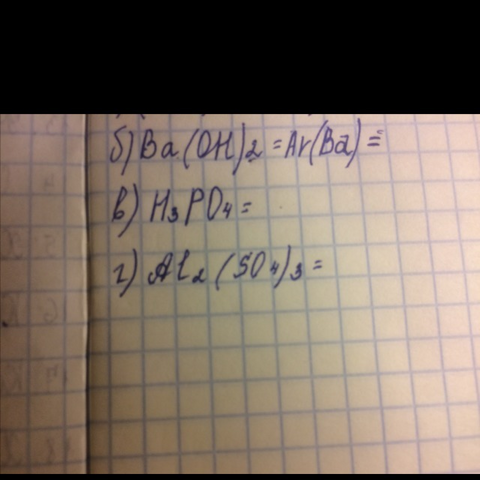 б) Ba(OH)2 = Ar(Ba) =
в) H3PO4 =
г) Al2(SO4)3 =